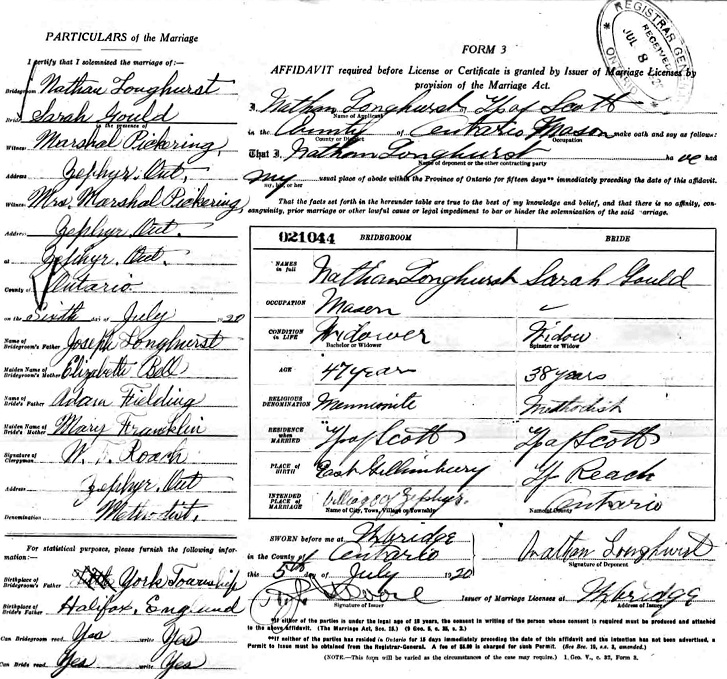 PARTICULARS of the Marriage
I certify that I solemnized the marriage of:—
Bridegroom Nathan Longhurst
Bride Sarah Gould
in the presence of
Witness Marshal Pickering,
Address Zephyr. Ont.
Witness Mrs. Marshal Pickering
Address Zephyr, Ont.
at Zephyr. Ont.
County of Ontario
on the Sixth day of July 1920
Name of Bridegroom's Father Joseph Longhurst
Maiden Name of Bridegroom's Mother Elizabeth Bell
Name of Bride's Father Adam Fielding
Maiden Name of Bride's Mother Mary Franklin
Signature of Clergyman W. T. Roach
Address Zephyr, Ont
Denomination Methodist.
For statistical purposes, please furnish the following information:—
Birthplace of Bridegroom's Father York Township
Birthplace of Bride's Father Halifax, England
Can Bridegroom read Yes write Yes
Can Bride read Yes write Yes
REGISTRAR GENERAL
RECEIVED
JUL 8
ONTARIO
FORM 3
AFFIDAVIT required before License or Certificate is granted by Issuer of Marriage Licenses by
provision of the Marriage Act.
I, Nathan Longhurst Tp of Scott
Name of Applicant
in the County of Ontario, Mason make oath and say as follows:
County or District
Occupation
That I, Nathan Longhurst have had
Name of deponent or the other contracting party
my usual place of abode within the Province of Ontario for fifteen days** immediately preceding the date of this affidavit.
my, his, or her
That the facts set forth in the hereunder table are true to the best of my knowledge and belief, and that there is no affinity, con-
sanguinity, prior marriage or other lawful cause or legal impediment to bar or hinder the solemnization of the said marriage.
021044 BRIDEGROOM BRIDE
NAMES in full Nathan Longhurst Sarah Gould
OCCUPATION Mason
CONDITION in LIFE Widower Widow
Bachelor or Widower Spinster or Widow
AGE 47 years 38 years
RELIGIOUS DENOMINATION Mennonite Methodist
RESIDENCE when MARRIED Tp of Scott Tp of Scott
PLACE OF BIRTH East Gillimbury Tp Reach
INTENDED PLACE OF MARRIAGE Village of Zephyr Ontario
Name of City, Town, Village or Township Name of County
SWORN before me at Uxbridge
in the County of Ontario
this 5th day of July 1920
Nathan Longhurst
Signature of Deponent
Signature of Issuer
Issuer of Marriage Licenses at Uxbridge
Address of Issuer
*If either of the parties is under the legal age of 18 years, the consent in writing of the person whose consent is required must be produced and attached
to the above affidavit. (The Marriage Act, Sec. 15.)
**If neither of the parties has resided in Ontario for 15 days immediately preceding the date of this affidavit and the intention has not been advertised, a
Permit to Issue must be obtained from the Registrar-General. A fee of $5.00 is charged for such Permit. (See Sec. 19, s.s. 2, amended.)
(NOTE.—This form will be varied as the circumstances of the case may require.) 1. Geo. V., c. 32, Form 3.